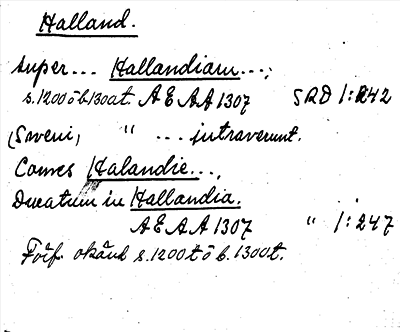 Halland.
super... Hallandiam...;
s.1200 ö b.1300 t. AEAA 1307 SRD 1:242
(Sveni, " ... intraverunt.
Comes Halandie...,
Ducatum in Hallandia.
AEAA 1307 " 1:247
Förf. okänd s.1200 t ö b. 1300 t.